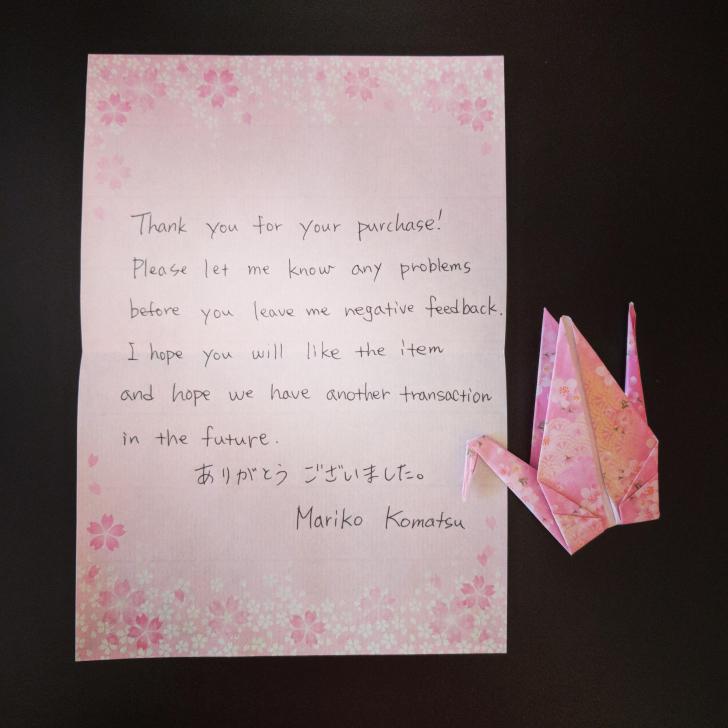 Thank you for your purchase!
Please let me know any problems
before you leave me negative feedback.
I hope you will like the item
and hope we have another transaction
in the future.
ありがとう ございました。
Mariko Komatsu